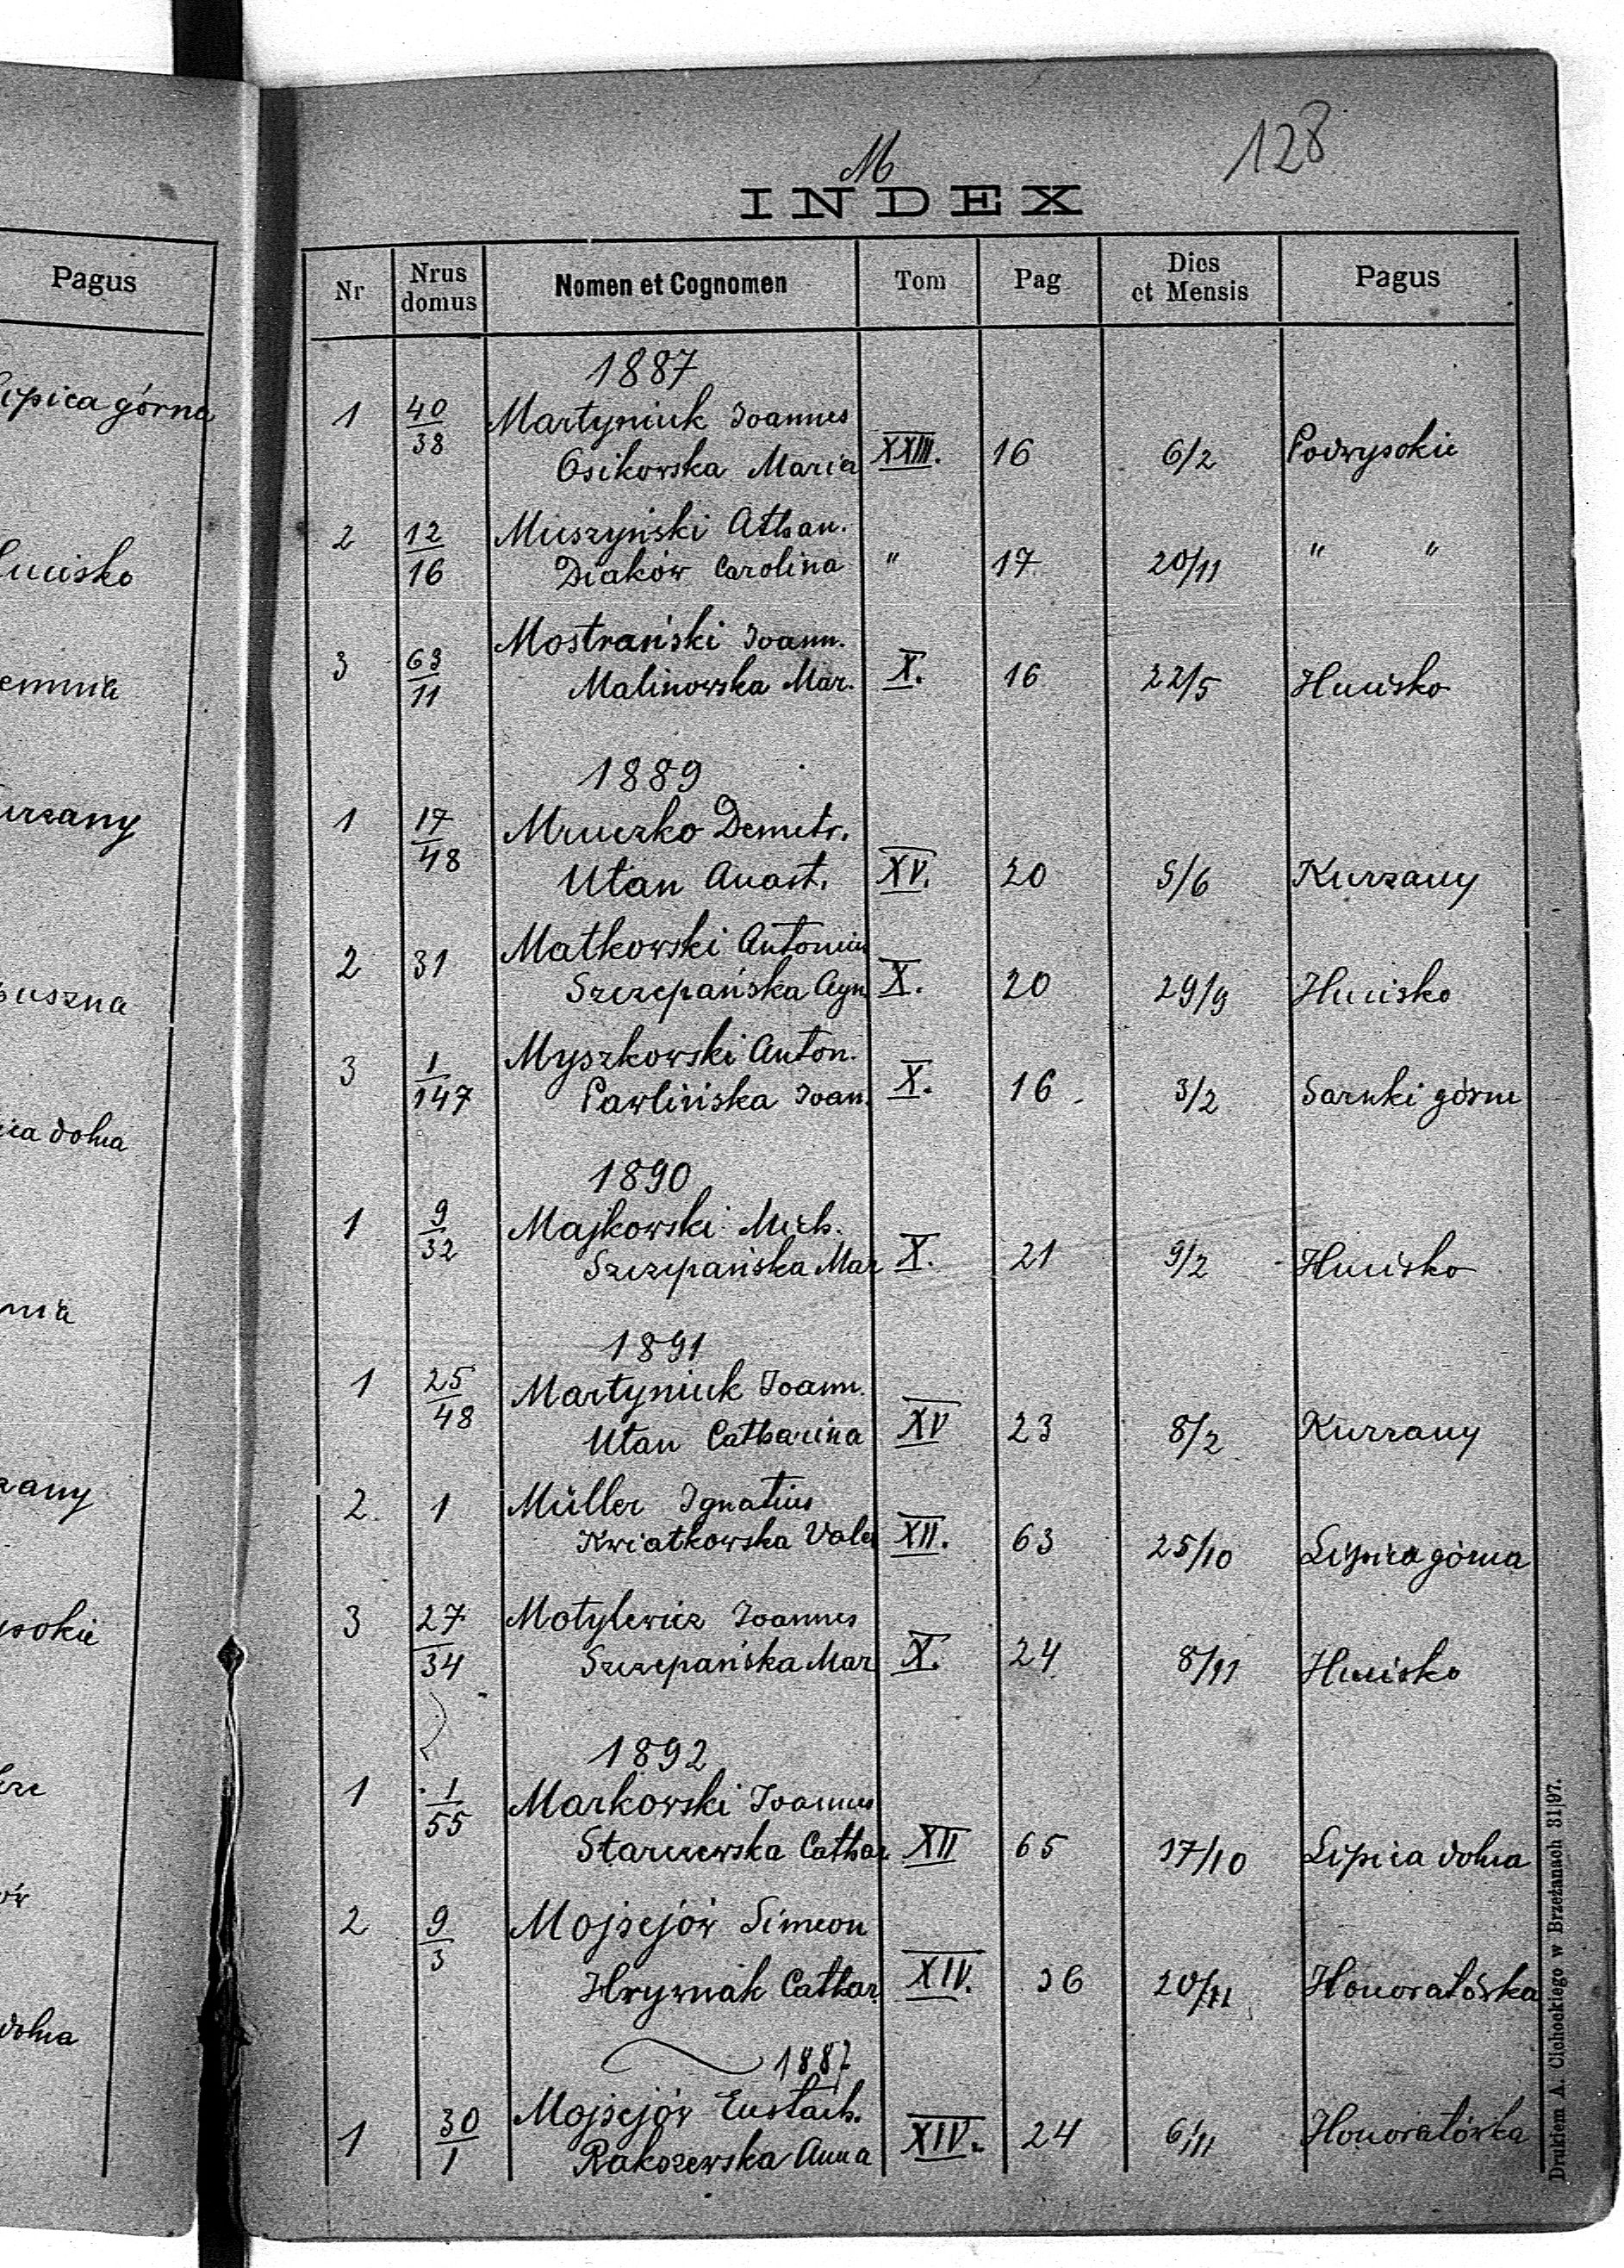 Pagus
Lipica górna
Hucisko
emnia
urzany
puszna
ica dolna
mnia
zany
ysokie
dolna
128
M
INDEX
Nr Nrus domus Nomen et Cognomen Tom Pag Dies et Mensis Pagus
1887
1 40/38 Martyniuk Joannes
Osikowska Maria XXIII. 16 6/2 Podwysokie
2 12/16 Muszyński Athan.
Diaków Carolina " 17 20/11 " "
3 63/11 Mostrański Joann.
Malinowska Mar. X. 16 22/5 Hucisko
1889
1 17/48 Mruczko Demetr.
Utan Anast. XV. 20 5/6 Kurzany
2 31 Matkowski Antonius
Szczepańska Agn X. 20 29/9 Hucisko
3 1/147 Myszkowski Anton.
Pawlińska Joan. X. 16 3/2 Sarnki górne
1890
1 9/32 Majkowski Mich.
Szczepańska Mar X. 21 9/2 Hucisko
1891
1 25/48 Martyniuk Joann.
Utan Catharina XV 23 8/2 Kurzany
2. 1 Müller Ignatius
Kwiatkowska Valer XII. 63 25/10 Lipica górna
3 27/34 Motylewicz Joannes
Szczepańska Mar X. 24 8/11 Hucisko
1892
1 1/55 Markowski Joannes
Starczewska Cathar XII 65 17/10 Lipica dolna
2 9/3 Mojsejów Simeon
Hrywnák Cathar. XIV. 26 20/11 Honoratówka
1887
1 30/1 Mojsejów Eustach.
Rakoszewska Anna XIV. 24 6/11 Honoratówka
Drukiem A. Cichockiego w Brzeżanach 31|97.